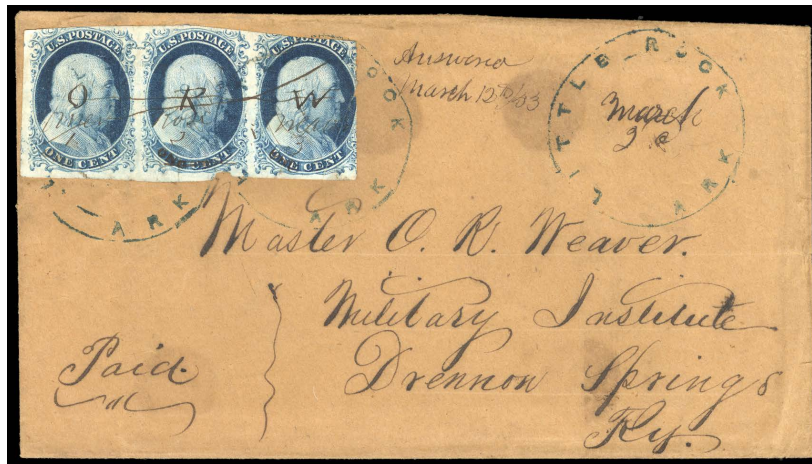 U.S. POSTAGE U.S. POSTAGE U.S. POSTAGE
O R W
ONE CENT ONE CENT ONE CENT
ARK
ARK
Answered
March 12th/53
LITTLE ROCK
March
ARK
Master O. R. Weaver.
Military Institute
Drennon Springs
Ky.
Paid.